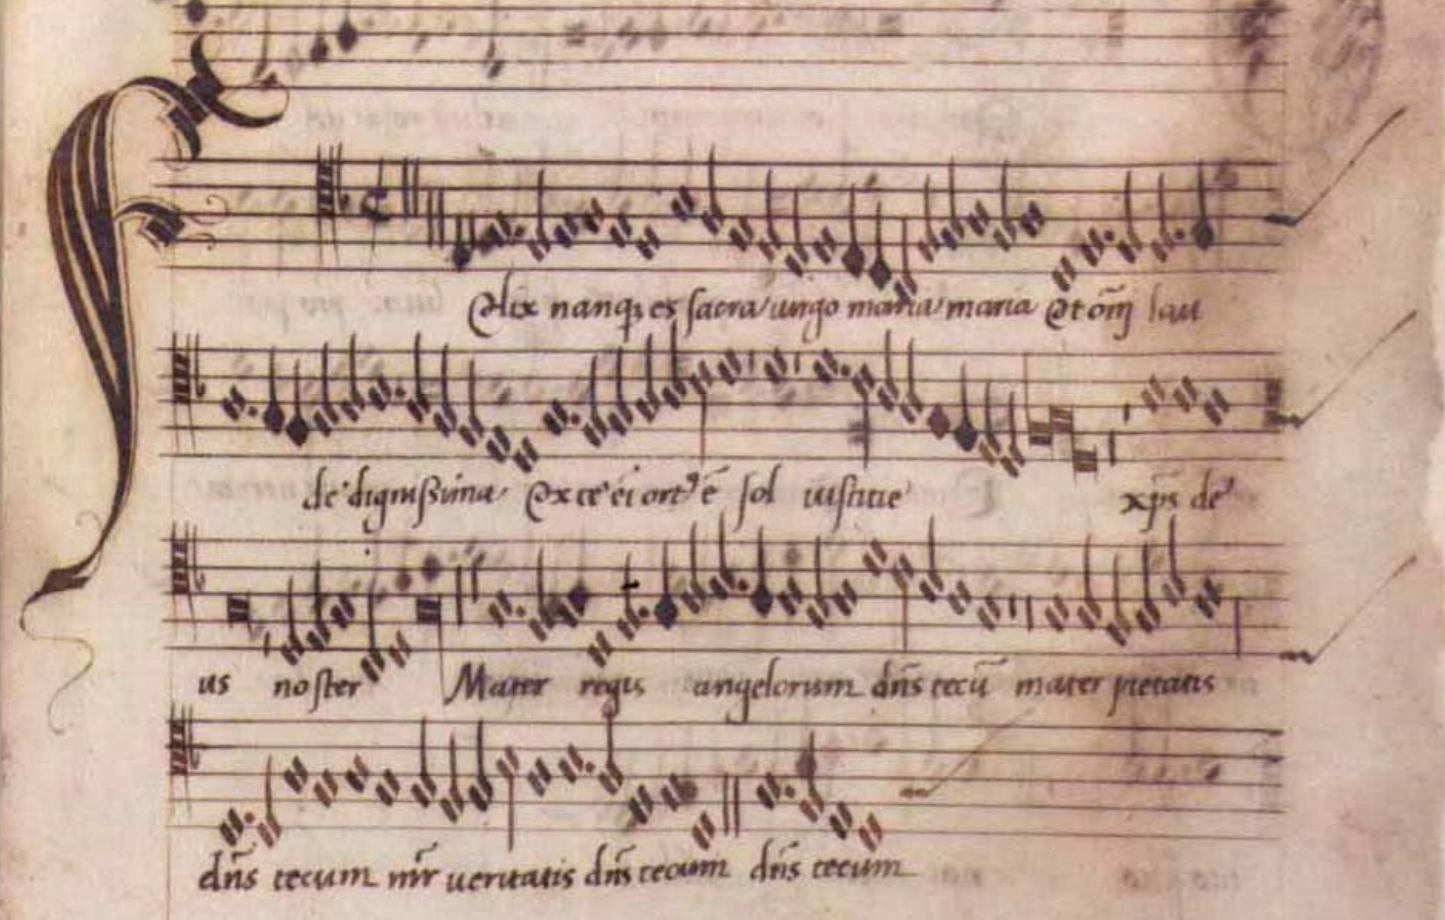 Felix nanqꝫ es sacra uirgo maria maria Et om̄j lau
de dignissima Ex te ei ort᾽ ē sol iustitie xp̄s de᾽
us noster Mater regis angelorum dn̄s tecū mater pietatis
dn̄s tecum mr̄ ueritatis dn̄s tecum dn̄s tecum